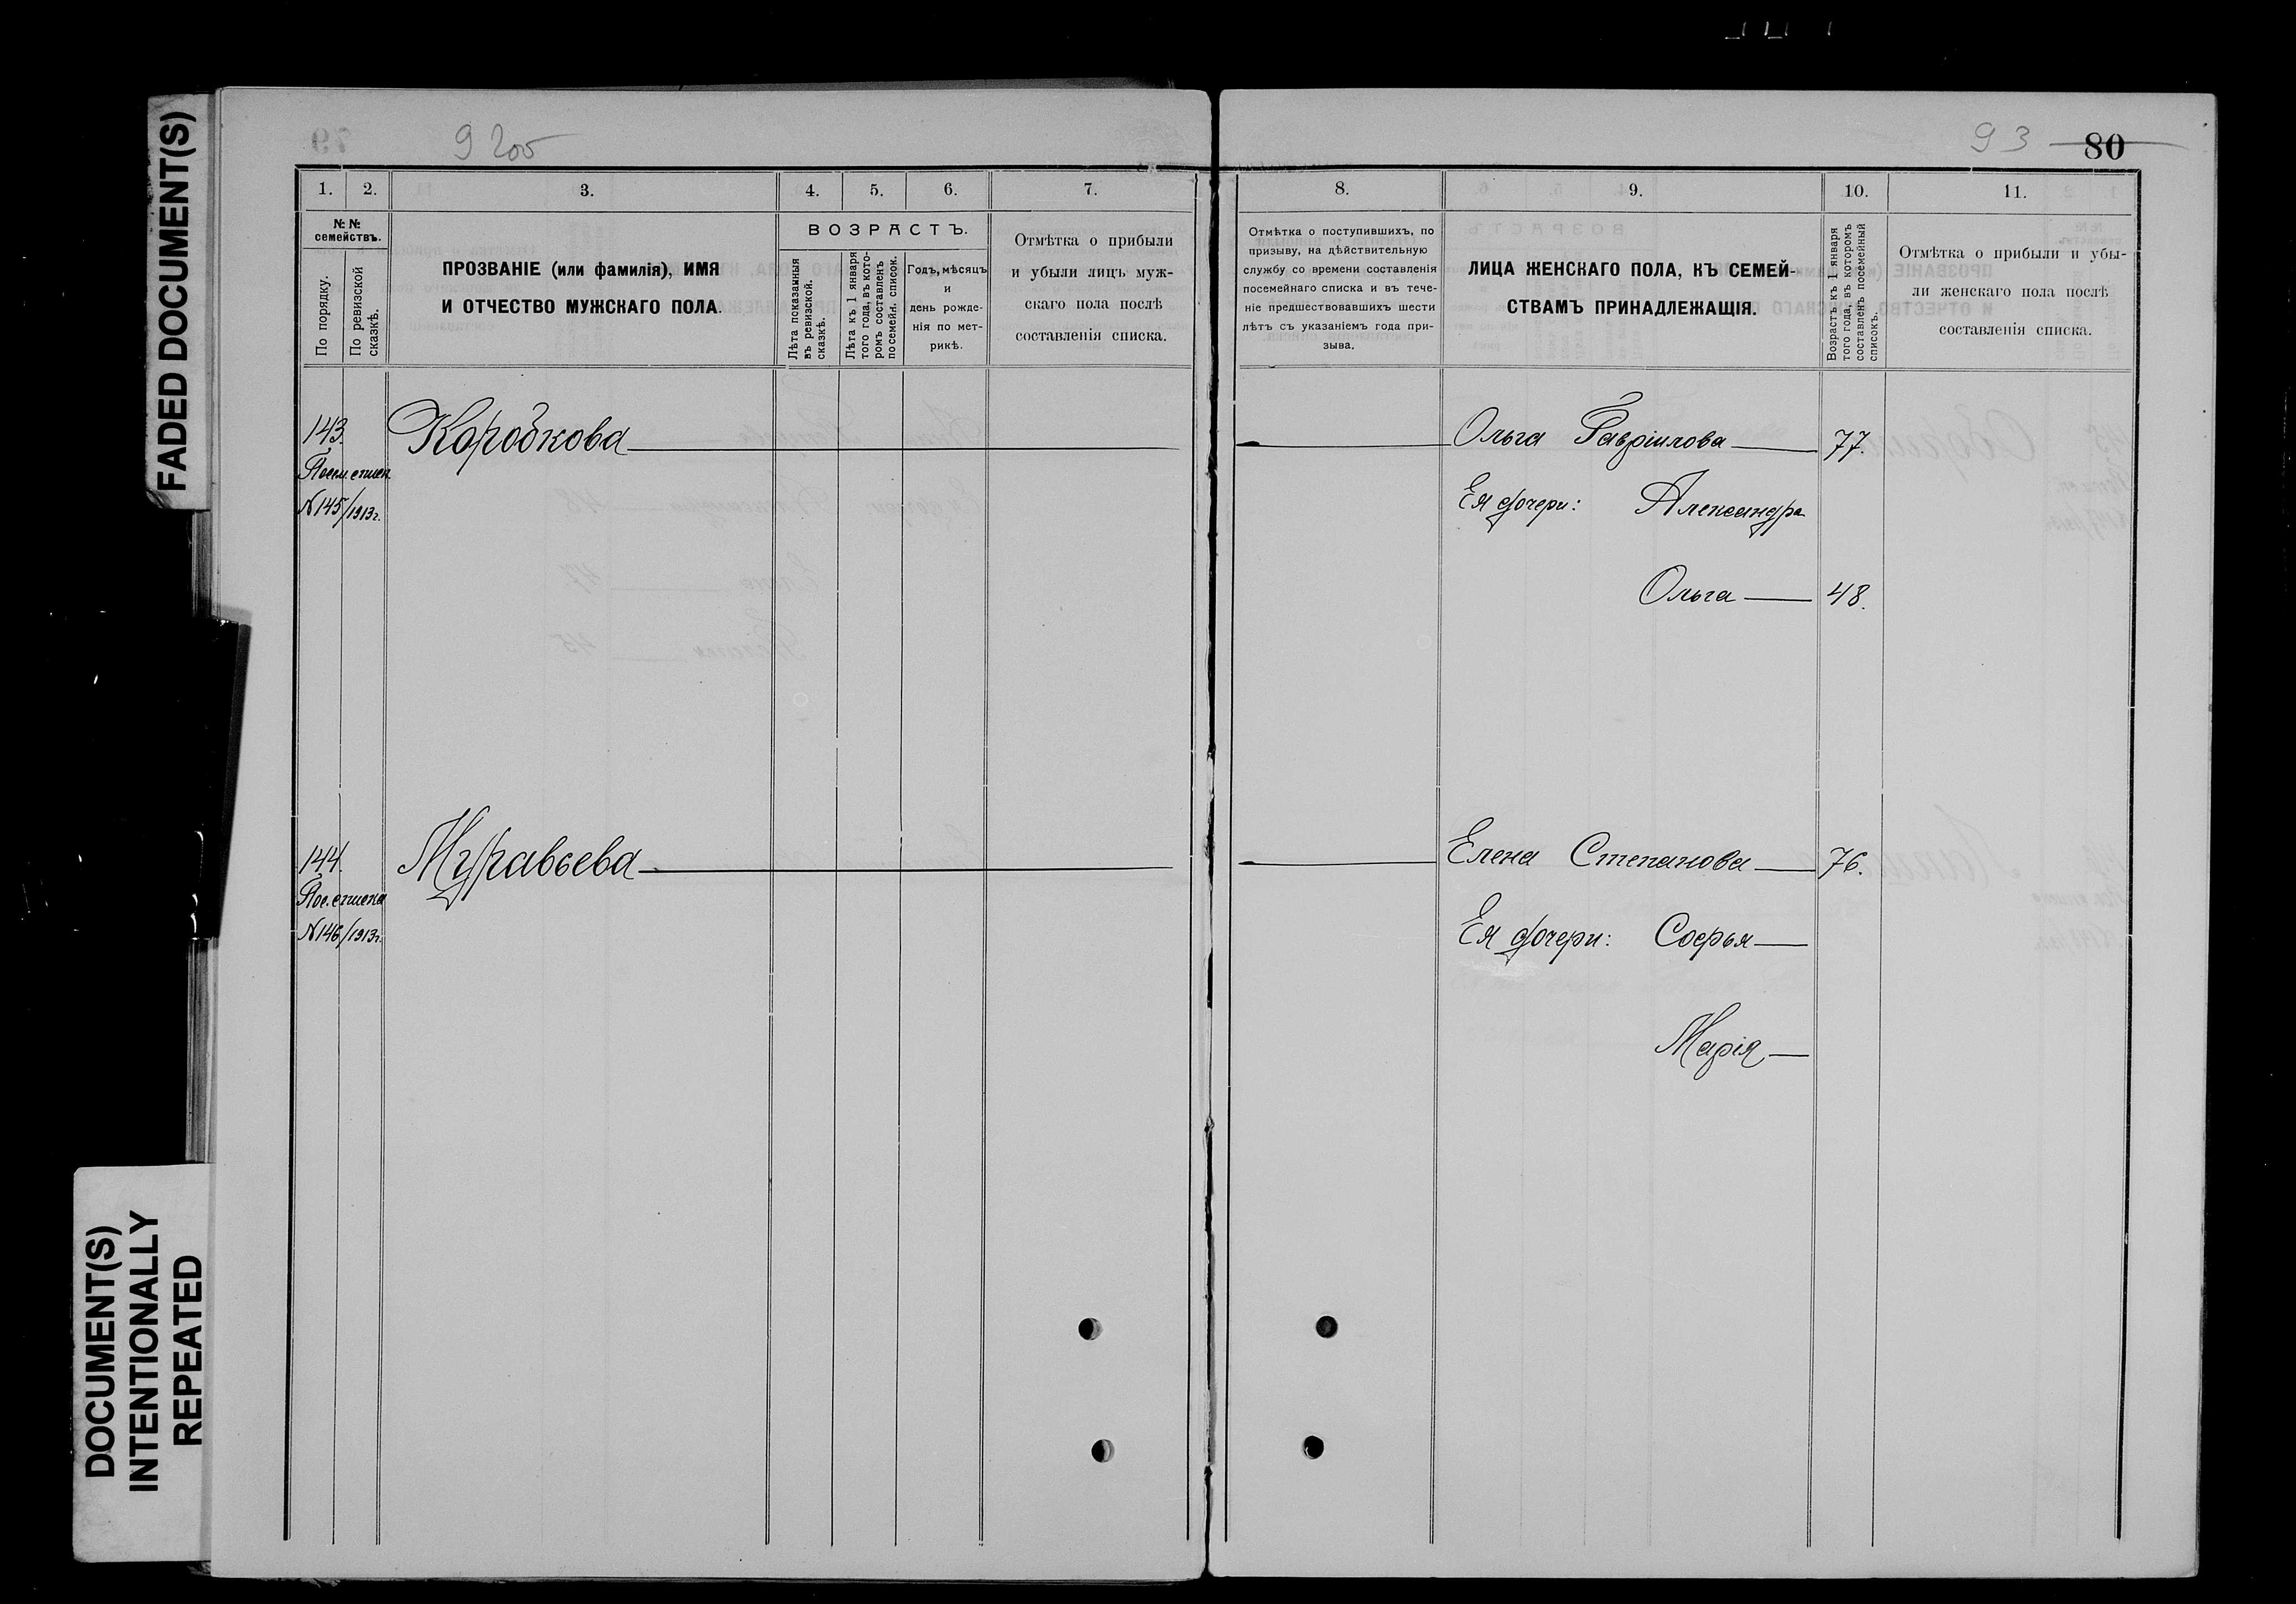 FADED DOCUMENT(S)
DOCUMENT(S)
INTENTIONALLY
REPEATED
9 200
93 80
1. 2. 3. 4. 5. 6. 7.
№№ семействъ.
По порядку.
По ревизской сказкѣ.
ПРОЗВАНІЕ (или фамилія), ИМЯ
И ОТЧЕСТВО МУЖСКАГО ПОЛА.
ВОЗРАСТЪ.
Лѣта показанныя
въ ревизской
сказкѣ.
Лѣта къ 1 января
того года, въ кото-
ромъ составленъ
посемейн. список.
Годъ, мѣсяцъ
и
день рожде-
нія по мет-
рикѣ.
Отмѣтка о прибыли
и убыли лицъ муж-
скаго пола послѣ
составленія списка.
143.
Посем. списк.
№145/1913г.
Коробкова
144.
Пос. списка
№146/1913г.
Муравьева
8. 9. 10. 11.
Отмѣтка о поступившихъ, по
призыву, на дѣйствительную
службу со времени составленія
посемейнаго списка и въ тече-
ніе предшествовавшихъ шести
лѣтъ съ указаніемъ года при-
зыва.
ЛИЦА ЖЕНСКАГО ПОЛА, КЪ СЕМЕЙ-
СТВАМЪ ПРИНАДЛЕЖАЩІЯ.
Возрастъ къ 1 января
того года, въ которомъ
составленъ посемейный
списокъ.
Отмѣтка о прибыли и убы-
ли женскаго пола послѣ
составленія списка.
Ольга Гавріилова 77.
Ея дочери: Александра
Ольга 48.
Елена Степанова 76.
Ея дочери: Софья
Марія